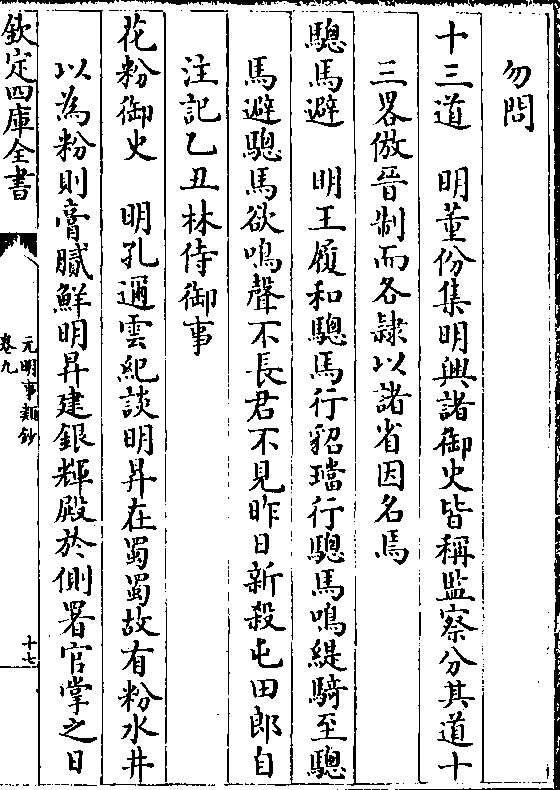 勿問
十三道　明董份集明興諸御史皆稱監察分其道十
三畧倣晉制而各隷以諸省因名焉
驄馬避　明王履和驄馬行貂璫行驄馬鳴緹騎至驄
馬避驄馬欲鳴聲不長君不見昨日新殺屯田郎自
注記乙丑林侍御事
花粉御史　明孔邇雲紀談明昇在蜀蜀故有粉水井
以為粉則膏膩鮮明昇建銀輝殿於側署官掌之日
欽定四庫全書
元明事類鈔
卷九
十七